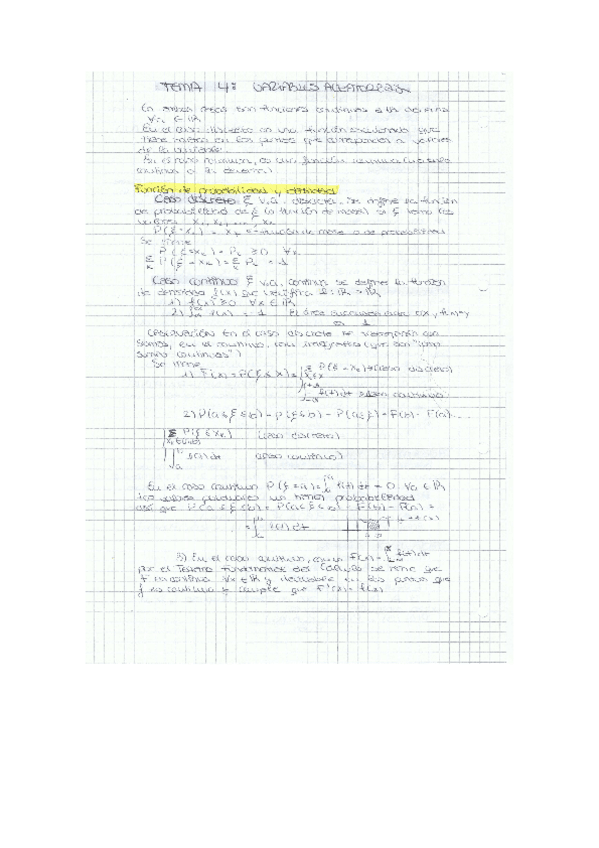 TEMA 4: VARIABLES ALEATORIAS
En ambos casos son funciones continuas a la derecha
∀x ∈ ℝ
En el caso discreto es una función escalonada que
tiene saltos en los puntos que corresponden a valores
de la variable.
En el caso continuo, es una función
Función de probabilidad y densidad
Caso discreto ξ v.a. discreta. Se define la función
de probabilidad de ξ (o función de masa) si ξ toma los
valores x₁, x₂, ...
P(ξ=xₖ) = Pₖ = función de masa o de probabilidad
Se tiene
P(ξ=xₖ) = Pₖ ≥ 0 ∀k
Σ P(ξ=xₖ) = Σ Pₖ = 1
Caso continuo ξ v.a. continua se define la función
de densidad f(x) que verifica f: ℝ → ℝ
1) f(x) ≥ 0 ∀x ∈ ℝ
2) ∫ f(x) = 1 El área encerrada entre OX y f(x)
es 1
Observación: En el caso discreto se
sumas, en el continuo, con integrales (que son "como
sumas continuas")
Se tiene
1) F(x) = P(ξ≤x) = Σ P(ξ=xₖ) → (caso discreto)
∫ f(t)dt → caso continuo
2) P(a≤ξ≤b) = P(ξ≤b) - P(a≤ξ) = F(b) - F(a)
Σ P(ξ=xₖ) (caso discreto)
∫ f(t)dt (caso continuo)
En el caso continuo P(ξ=a) = ∫ f(t)dt = 0 ∀a ∈ ℝ
los valores puntuales no tienen probabilidad
así que P(a≤ξ≤b) = P(a<ξ≤b) = F(b) - F(a) =
= ∫ f(t)dt
3) En el caso continuo, como F(x) = ∫ f(t)dt
por el Teorema Fundamental del Cálculo se tiene que
F es continua ∀x ∈ ℝ y derivable en los puntos que
f es continua y cumple que F'(x) = f(x)